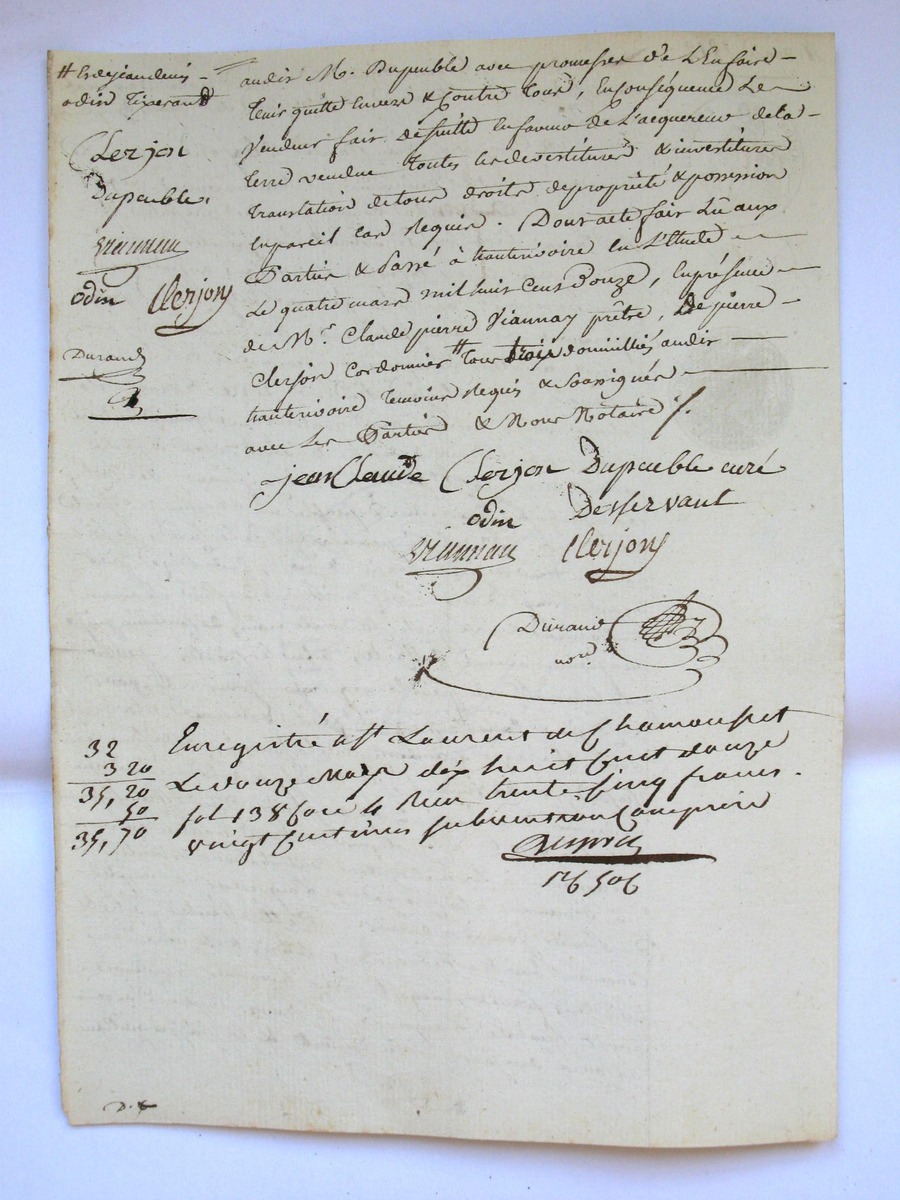 # Et de jean denis
odin Tixerand
Clerjon
Dupeuble.
Viannay
odin Clerjon
Durand
audit M. Dupeuble avec promesses de L'En faire
tenir quitte Envers & Contre tous, En conséquence Le
Vendeur fait de suitte En faveur de L'acquereur de la
terre vendue toutes les devestitures & investitures
translation de tous droits de propriété & possession
En pareil cas Requis. Dont acte fait Lû aux
Parties & Passé à hauterivoire En L'Etude
Le quatre mars mil huit Cent Douze, En présence
de Mr. Claude pierre Viannay prêtre, De pierre
Clerjon Cordonnier # tous trois domiciliés audit
hauterivoire temoins Requis & Soussignés
avec Les Parties & Nous Notaire /.
jean Claude Clerjon Dupeuble curé
odin Desservant
Viannay Clerjon
Durand
nore.
32
3 20
35, 20
50
35, 70
Enregistré a St Laurent de Chamousset
Le douze Mars dix huit Cent douze
fol 138 Case 4 Reçu trente Cinq francs.
vingt Centimes subvention Comprise
D. &